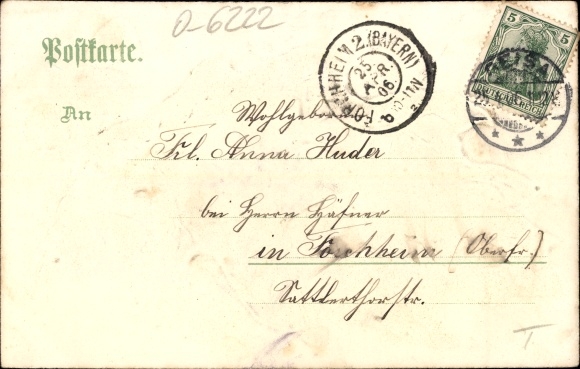 O-6222
Postkarte.
5
DEUTSCHES REICH
GEISA
FORCHHEIM 2. (BAYERN)
25
APR.
06
An
Wohlgeboren
Frl. Anna Huder
bei Herrn Häfner
in Forchheim (Oberfr.)
Sattlerthorstr.
T